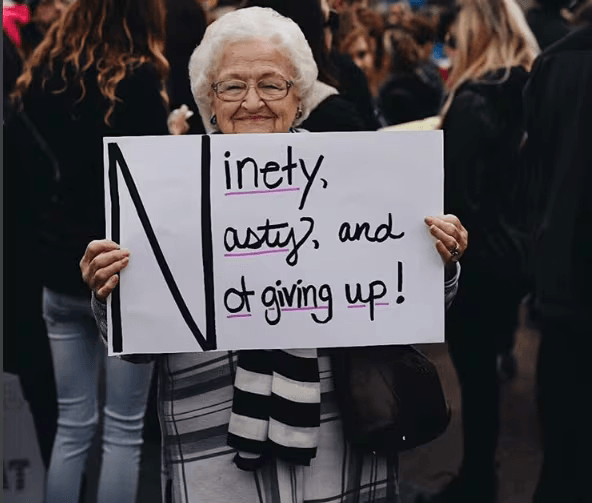 N
inety,
asty, and
ot giving up!